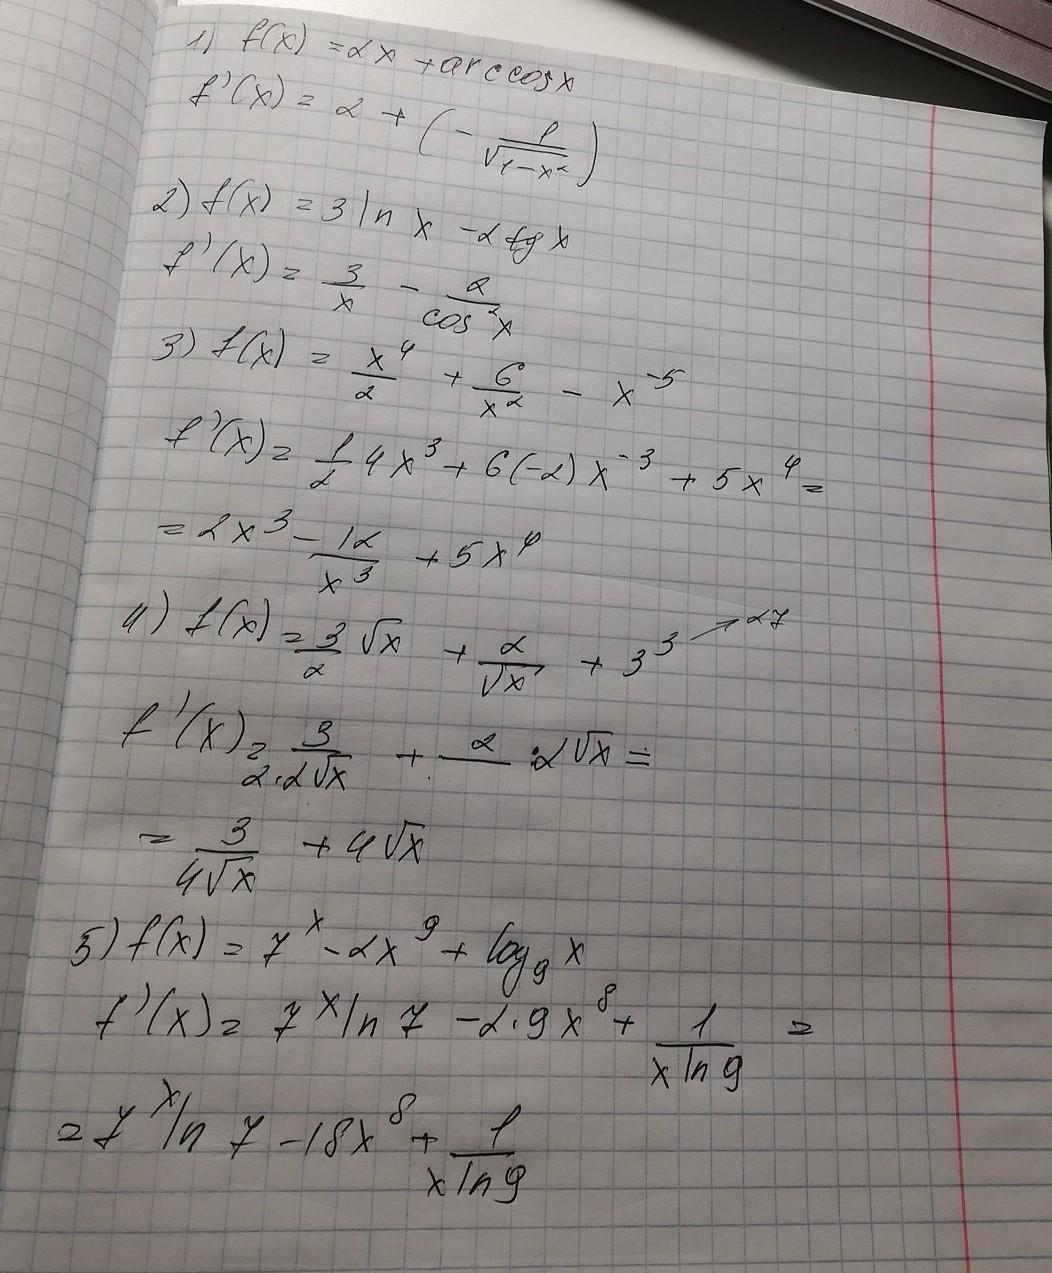 1) f(x) = 2x + arccosx
f'(x) = 2 + (- 1/√(1-x²))
2) f(x) = 3 ln x - 2 tg x
f'(x) = 3/x - 2/cos²x
3) f(x) = x⁴/2 + 6/x² - x⁻⁵
f'(x) = 1/2 4x³ + 6(-2)x⁻³ + 5x⁴ =
= 2x³ - 12/x³ + 5x⁴
4) f(x) = 3/2 √x + 2/√x + 3³ → 27
f'(x) = 3/(2·2√x) + 2/ : 2√x =
= 3/(4√x) + 4√x
5) f(x) = 7ˣ - 2x⁹ + log₉ x
f'(x) = 7ˣ ln 7 - 2·9x⁸ + 1/(x ln 9) =
= 7ˣ ln 7 - 18x⁸ + 1/(x ln 9)